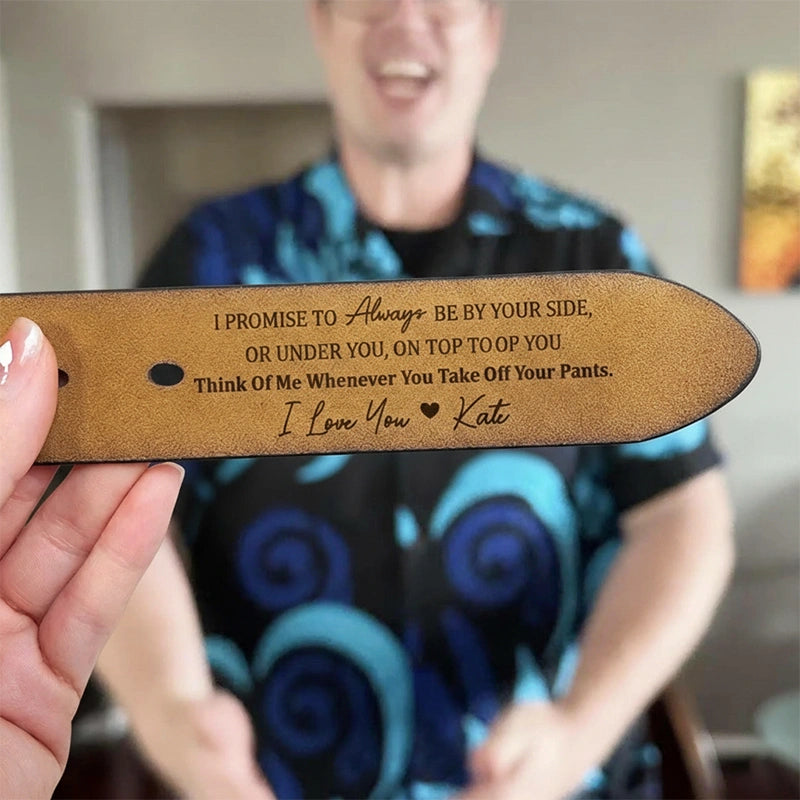 I PROMISE TO Always BE BY YOUR SIDE,
OR UNDER YOU, ON TOP TO OP YOU
Think Of Me Whenever You Take Off Your Pants.
I Love You ♥ Kate